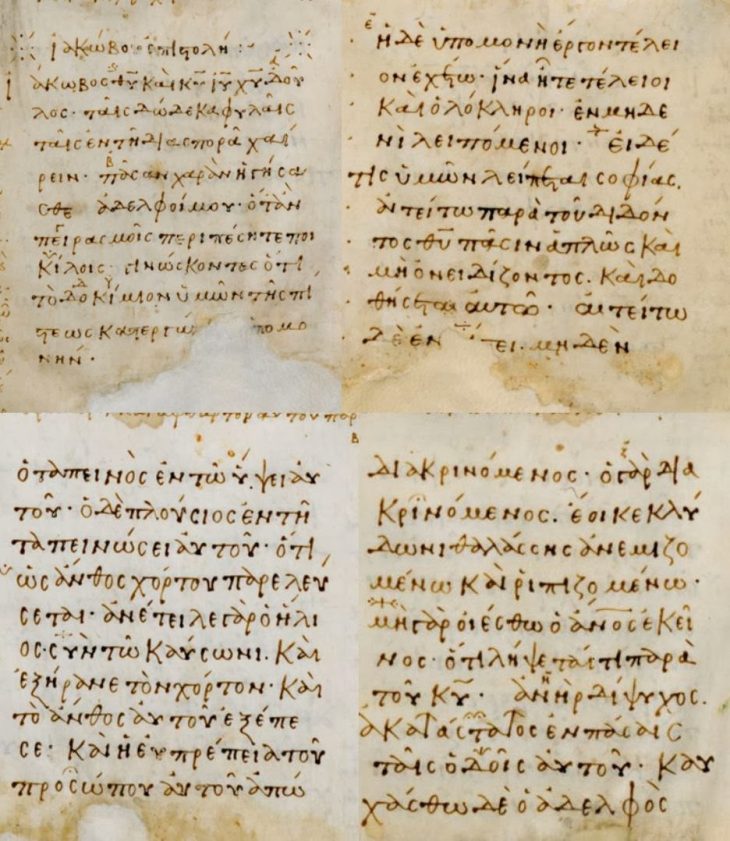 ἰακώβου ἐπιστολή:
ἰάκωβος θυ καὶ κυ ιυ χυ δοῦ
λος· ταῖς δώδεκα φυλαῖς
ταῖς ἐν τῆ διασπορᾶ χαί
ρειν· πᾶσαν χαρὰν ἡγήσα
σθε ἀδελφοί μου· ὅταν
πειρασμοῖς περιπέσητε ποι
κίλοις· γινώσκοντες ὅτι
τὸ δοκίμιον ὑμῶν τῆς πί
στεως κατεργά πομο
νήν·
ἡ δὲ ὑπομονὴ ἔργον τέλει
ον ἐχέτω· ἵνα ἦτε τέλειοι
καὶ ὁλόκληροι· ἐν μηδε
νὶ λειπόμενοι· εἰ δέ
τις ὑμῶν λείπεται σοφίας.
ἀιτείτω παρὰ τοῦ διδόν
τος θυ πᾶσιν ἁπλῶς καὶ
μὴ ὀνειδίζοντος. καὶ δο
θήσεται αὐτῶ· αἰτείτω
δὲ ἐν τει. μηδὲν
ὁ ταπεινὸς ἐν τῶ ὕψει αὐ
τοῦ· ὁ δὲ πλούσιος ἐν τῆ
ταπεινώσει αὐτοῦ· ὅτι
ὡς ἄνθος χόρτου παρελεύ
σεται· ἀνέτειλε γὰρ ὁ ἥλι
ος· σὺν τῶ καύσωνι. καὶ
ἐξήρανε τὸν χόρτον· καὶ
τὸ ἄνθος αὐτοῦ ἐξέπε
σε· καὶ ἡ εὐπρέπεια τοῦ
προσώπου αὐτοῦ ἀπώ
διακρινόμενος· ὁ γὰρ δια
κρινόμενος. ἔοικε κλύ
δωνι θαλάσσης ἀνεμιζο
μένω καὶ ῥιπιζομένω·
μὴ γὰρ οἰέσθω ὁ ανος ἐκεῖ
νος· ὅτι λήψεταί τι παρὰ
τοῦ κυ· ἀνὴρ δίψυχος.
ἀκατάστατος ἐν πάσαις
ταῖς ὁδοῖς αὐτοῦ· καυ
χάσθω δὲ ὁ ἀδελφὸς